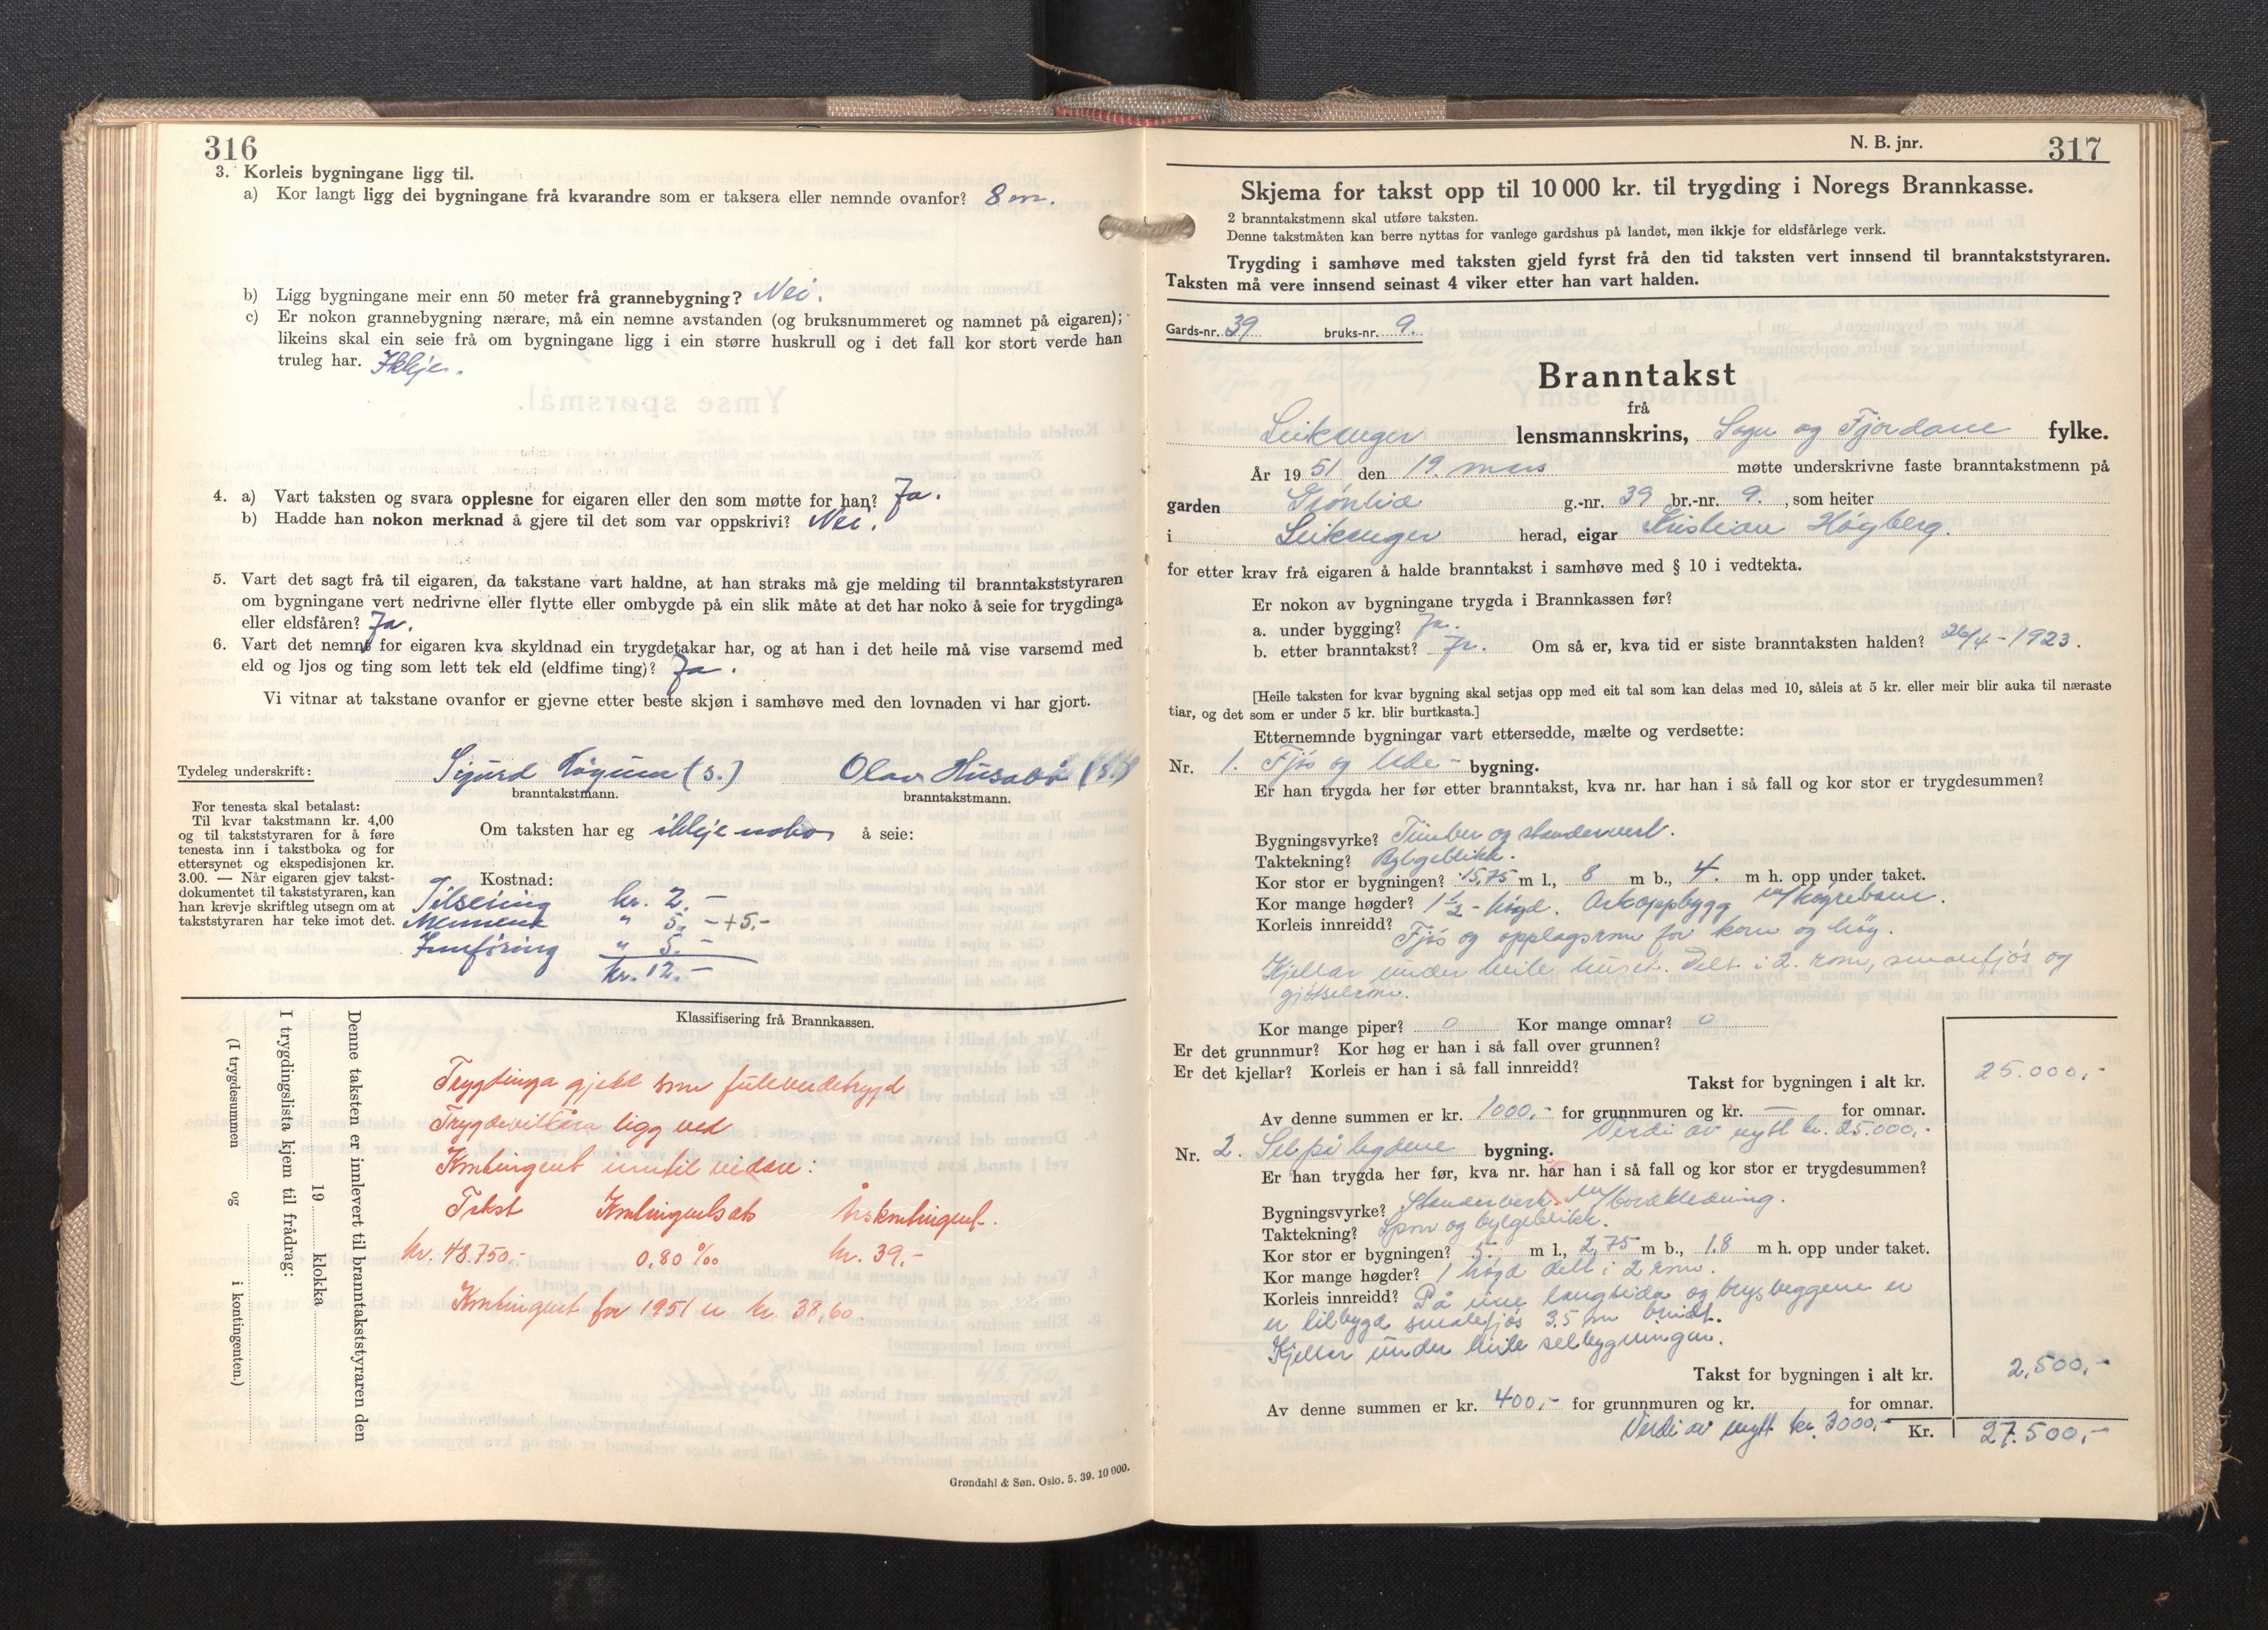 316
3. Korleis bygningane ligg til.
a) Kor langt ligg dei bygningane frå kvarandre som er taksera eller nemnde ovanfor? 8 m.
b) Ligg bygningane meir enn 50 meter frå grannebygning? Nei.
c) Er nokon grannebygning nærare, må ein nemne avstanden (og bruksnummeret og namnet på eigaren);
likeins skal ein seie frå om bygningane ligg i ein større huskrull og i det fall kor stort verde han
truleg har. Ikkje.
4. a) Vart taksten og svara opplesne for eigaren eller den som møtte for han? Ja.
b) Hadde han nokon merknad å gjere til det som var oppskrivi? Nei.
5. Vart det sagt frå til eigaren, da takstane vart haldne, at han straks må gje melding til branntakststyraren
om bygningane vert nedrivne eller flytte eller ombygde på ein slik måte at det har noko å seie for trygdinga
eller eldsfåren? Ja.
6. Vart det nemnt for eigaren kva skyldnad ein trygdetakar har, og at han i det heile må vise varsemd med
eld og ljos og ting som lett tek eld (eldfime ting)? Ja.
Vi vitnar at takstane ovanfor er gjevne etter beste skjøn i samhøve med den lovnaden vi har gjort.
Tydeleg underskrift: Sjurd (s.) Olav Husabø (s.)
branntakstmann. branntakstmann.
For tenesta skal betalast:
Til kvar takstmann kr. 4,00
og til takststyraren for å føre
tenesta inn i takstboka og for
ettersynet og ekspedisjonen kr.
3.00. — Når eigaren gjev takst-
dokumentet til takststyraren, kan
han krevje skriftleg utsegn om at
takststyraren har teke imot det.
Om taksten har eg ikkje noko å seie:
Kostnad:
Tilseiing kr. 2.-
Mennene " 5.- +5.-
Innføring " 5.-
kr. 12.-
Klassifisering frå Brannkassen.
Trygdinga gjeld som fullverdetrygd
Trygdevilkåra ligg ved
Kontingent inntil vidare:
Takst Kontingentsats Årskontingent.
kr. 48.750,- 0,80 ‰ kr. 39.-
Kontingent for 1951 er kr. 38,60
Denne taksten er innlevert til branntakststyraren den
19 klokka
I trygdingslista kjem til frådrag:
(I trygdesummen og i kontingenten.)
Grøndahl & Søn. Oslo. 5. 39. 10 000.
N. B. jnr. 317
Skjema for takst opp til 10 000 kr. til trygding i Noregs Brannkasse.
2 branntakstmenn skal utføre taksten.
Denne takstmåten kan berre nyttas for vanlege gardshus på landet, men ikkje for eldsfårlege verk.
Trygding i samhøve med taksten gjeld fyrst frå den tid taksten vert innsend til branntakststyraren.
Taksten må vere innsend seinast 4 viker etter han vart halden.
Gards-nr. 39 bruks-nr. 9.
Branntakst
frå
Leikanger lensmannskrins, Sogn og Fjordane fylke.
År 1951 den 19. mars møtte underskrivne faste branntakstmenn på
garden Grønlid g.-nr. 39 br.-nr. 9. , som heiter
i Leikanger herad, eigar Kristian Høgberg.
for etter krav frå eigaren å halde branntakst i samhøve med § 10 i vedtekta.
Er nokon av bygningane trygda i Brannkassen før?
a. under bygging? Ja.
b. etter branntakst? Ja. Om så er, kva tid er siste branntaksten halden? 26/4 - 1923.
[Heile taksten for kvar bygning skal setjas opp med eit tal som kan delas med 10, såleis at 5 kr. eller meir blir auka til næraste
tiar, og det som er under 5 kr. blir burtkasta.]
Etternemnde bygningar vart ettersedde, mælte og verdsette:
Nr. 1. Fjøs og løde - bygning.
Er han trygda her før etter branntakst, kva nr. har han i så fall og kor stor er trygdesummen?
Bygningsvyrke? Timber og standerverk.
Taktekning? Bylgjeblikk.
Kor stor er bygningen? 15,75 m l., 8 m b., 4. m h. opp under taket.
Kor mange høgder? 1 ½ - høgd. Arkoppbygg m/køyrebane.
Korleis innreidd? Fjøs og opplagsrom for korn og høy.
Kjellar under heile huset. Delt i 2. rom, smalefjøs og
gjødselrom.
Kor mange piper? 0 Kor mange omnar? 0
Er det grunnmur? Kor høg er han i så fall over grunnen?
Er det kjellar? Korleis er han i så fall innreidd?
Takst for bygningen i alt kr. 25.000,-
Av denne summen er kr. 1000,- for grunnmuren og kr. — for omnar.
Verdi av nytt kr. 25.000,-
Nr. 2. Sel på legdene bygning.
Er han trygda her før, kva nr. har han i så fall og kor stor er trygdesummen?
Bygningsvyrke? Standerverk m/bordkledning.
Taktekning? Spon og bylgeblikk.
Kor stor er bygningen? 5. m l., 2,75 m b., 1.8 m h. opp under taket.
Kor mange høgder? 1 høgd delt i 2 rom.
Korleis innreidd? På eine langsida og brysveggene er
er tilbygd smalefjøs 3.5 m breidt.
Kjellar under heile selbygningen.
Takst for bygningen i alt kr. 2,500,-
Av denne summen er kr. 400,- for grunnmuren og kr. for omnar.
Verdi av nytt kr. 3000,- Kr. 27.500,-